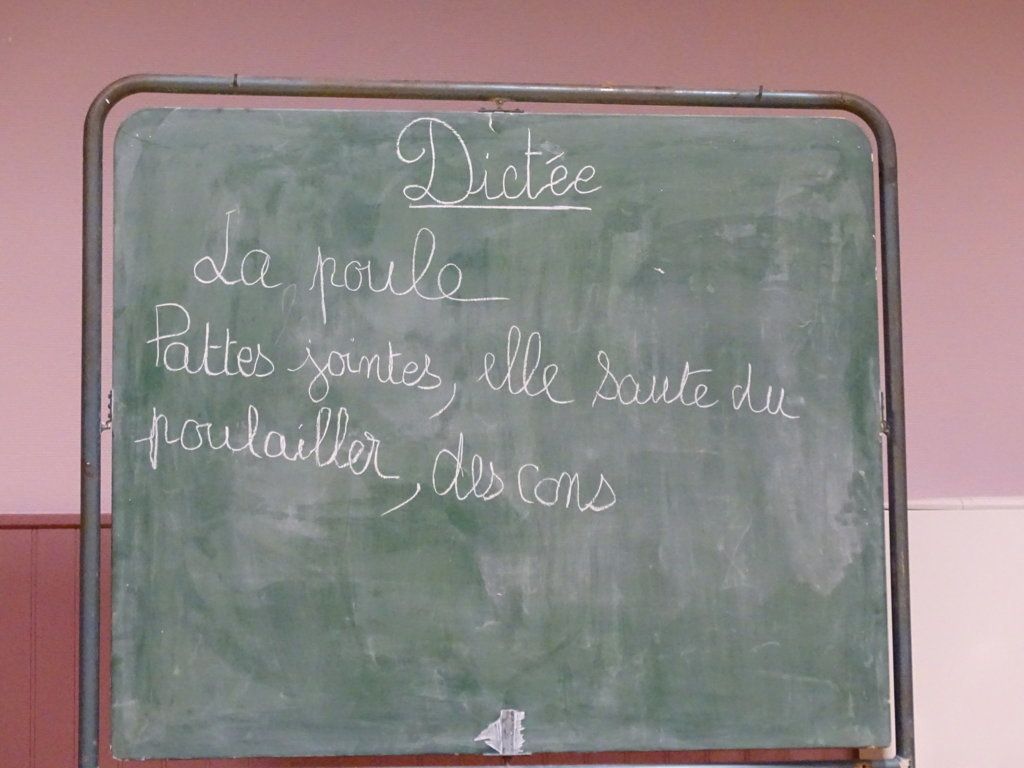 Dictée
La poule
Pattes jointes, elle saute du
poulailler, des cons